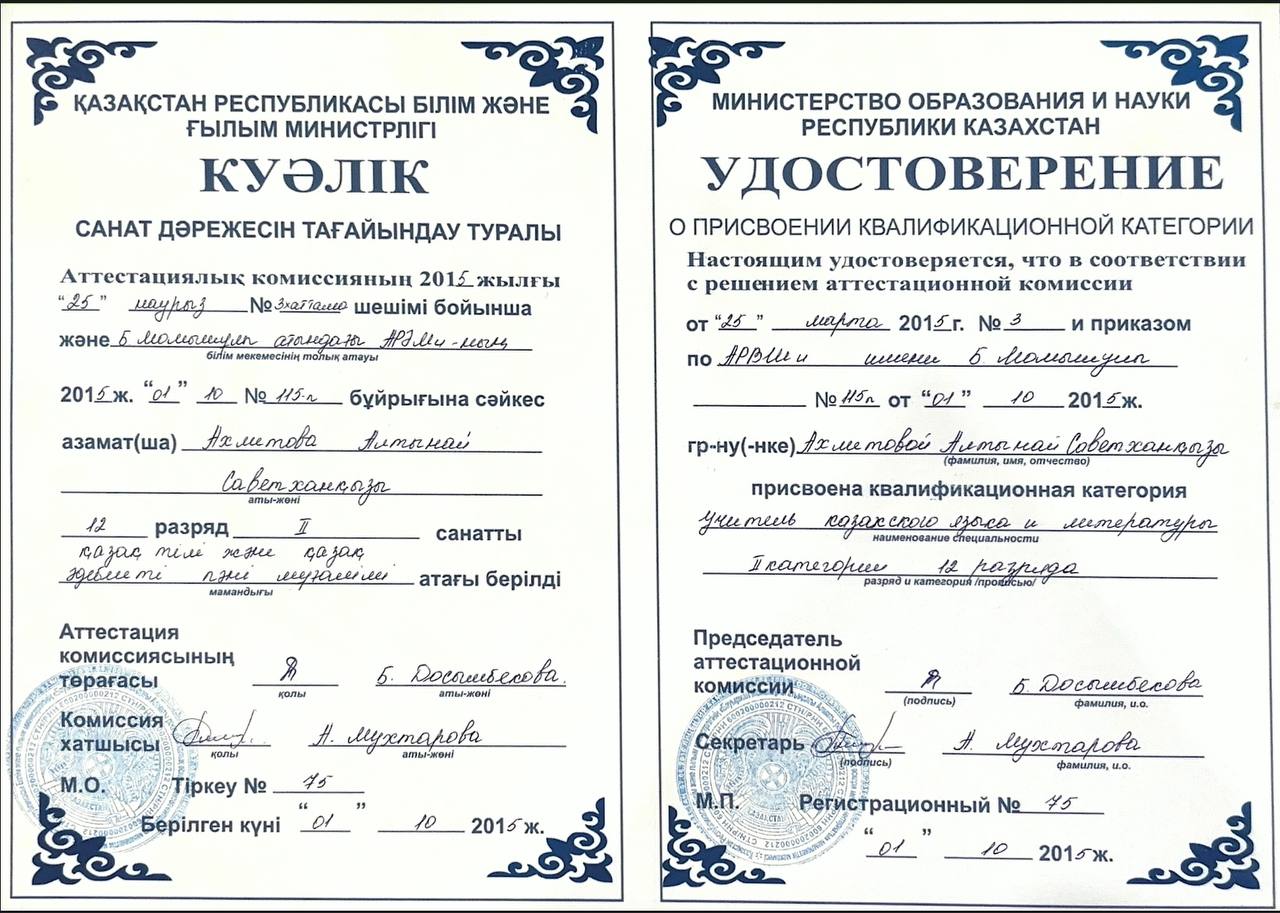 ҚАЗАҚСТАН РЕСПУБЛИКАСЫ БІЛІМ ЖӘНЕ
ҒЫЛЫМ МИНИСТРЛІГІ
КУӘЛІК
САНАТ ДӘРЕЖЕСІН ТАҒАЙЫНДАУ ТУРАЛЫ
Аттестациялық комиссияның 2015 жылғы
"25" наурыз № 3хаттама шешімі бойынша
және Б Момышұлы атындағы АРӘМИ-ның
білім мекемесінің толық атауы
2015ж. "01" 10 № 115-п бұйрығына сәйкес
азамат(ша) Ахметова Алтынай
Саветханқызы
аты-жөні
12 разряд II санатты
қазақ тілі және қазақ
әдебиеті пәні мұғалімі атағы берілді
мамандығы
Аттестация
комиссиясының
төрағасы Б. Досымбекова.
қолы аты-жөні
Комиссия
хатшысы А. Мухтарова
қолы аты-жөні
М.О. Тіркеу № 75
Берілген күні "01" 10 2015ж.
МИНИСТЕРСТВО ОБРАЗОВАНИЯ И НАУКИ
РЕСПУБЛИКИ КАЗАХСТАН
УДОСТОВЕРЕНИЕ
О ПРИСВОЕНИИ КВАЛИФИКАЦИОННОЙ КАТЕГОРИИ
Настоящим удостоверяется, что в соответствии
с решением аттестационной комиссии
от "25" марта 2015г. №3 и приказом
по АРВШИ имени Б. Момышулы
№ 115п от "01" 10 2015ж.
гр-ну(-нке) Ахметовой Алтынай Советханқызы
(фамилия, имя, отчество)
присвоена квалификационная категория
учитель казахского языка и литературы
наименование специальности
II категории 12 разряда
разряд и категория /прописью/
Председатель
аттестационной
комиссии Б. Досымбекова
(подпись) фамилия, и.о.
Секретарь А. Мухтарова
(подпись) фамилия, и.о.
М.П. Регистрационный № 75
"01" 10 2015ж.